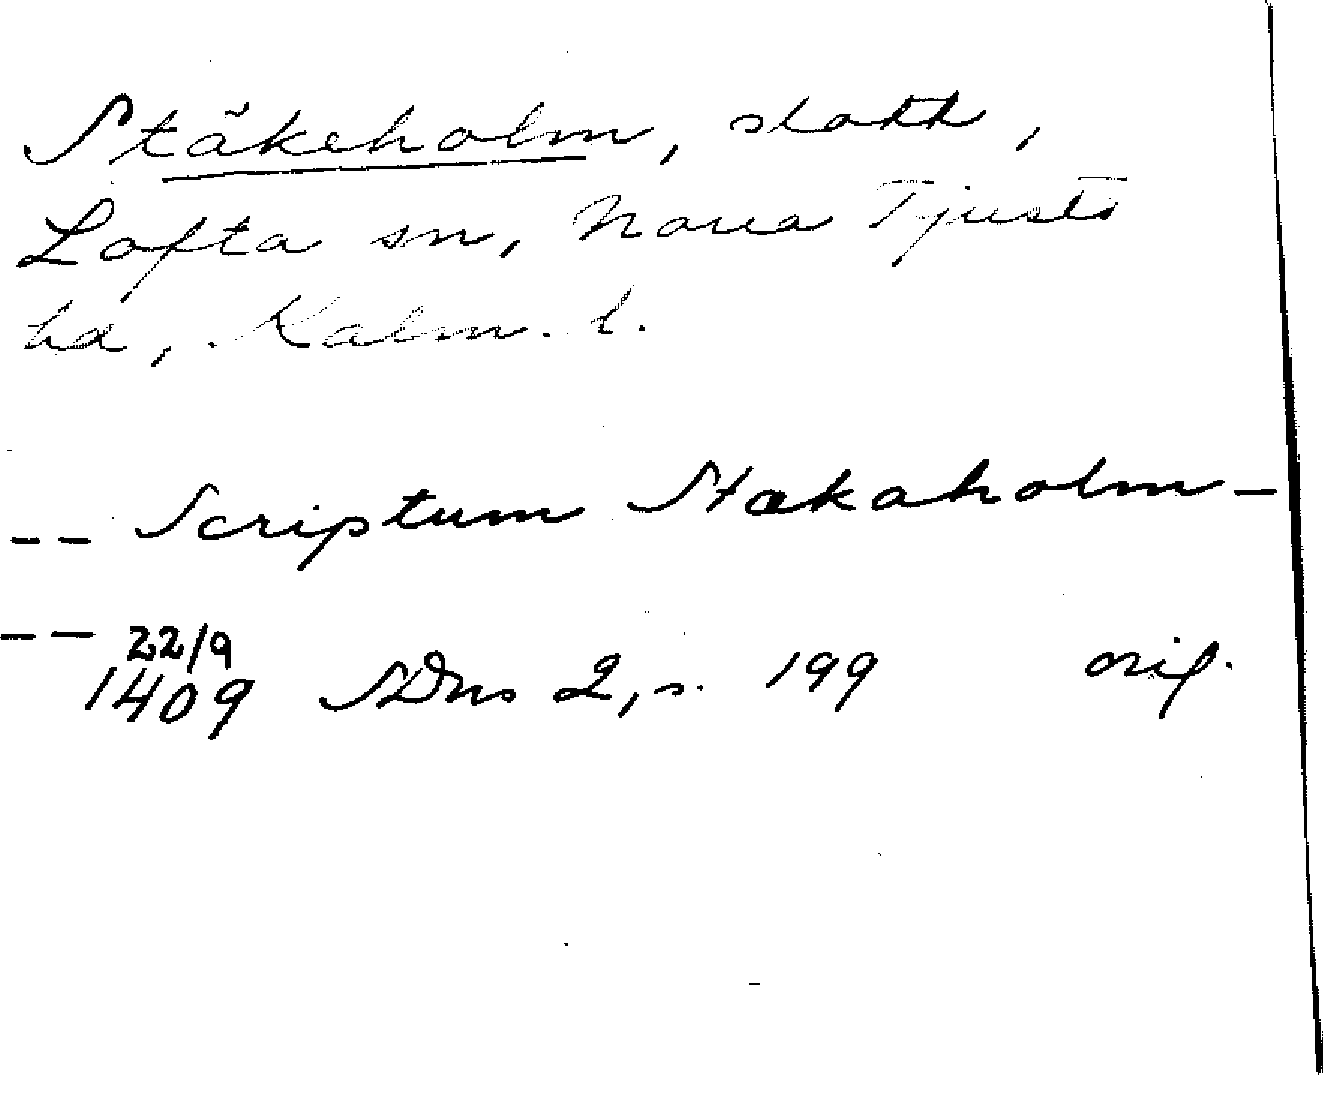 Stäkeholm, slott,
Lofta sn, Norra Tjusts
hd, Kalm. l.
-- Scriptum Stækaholm -
-- 22/9
1409 SDns 2, s. 199 orig.